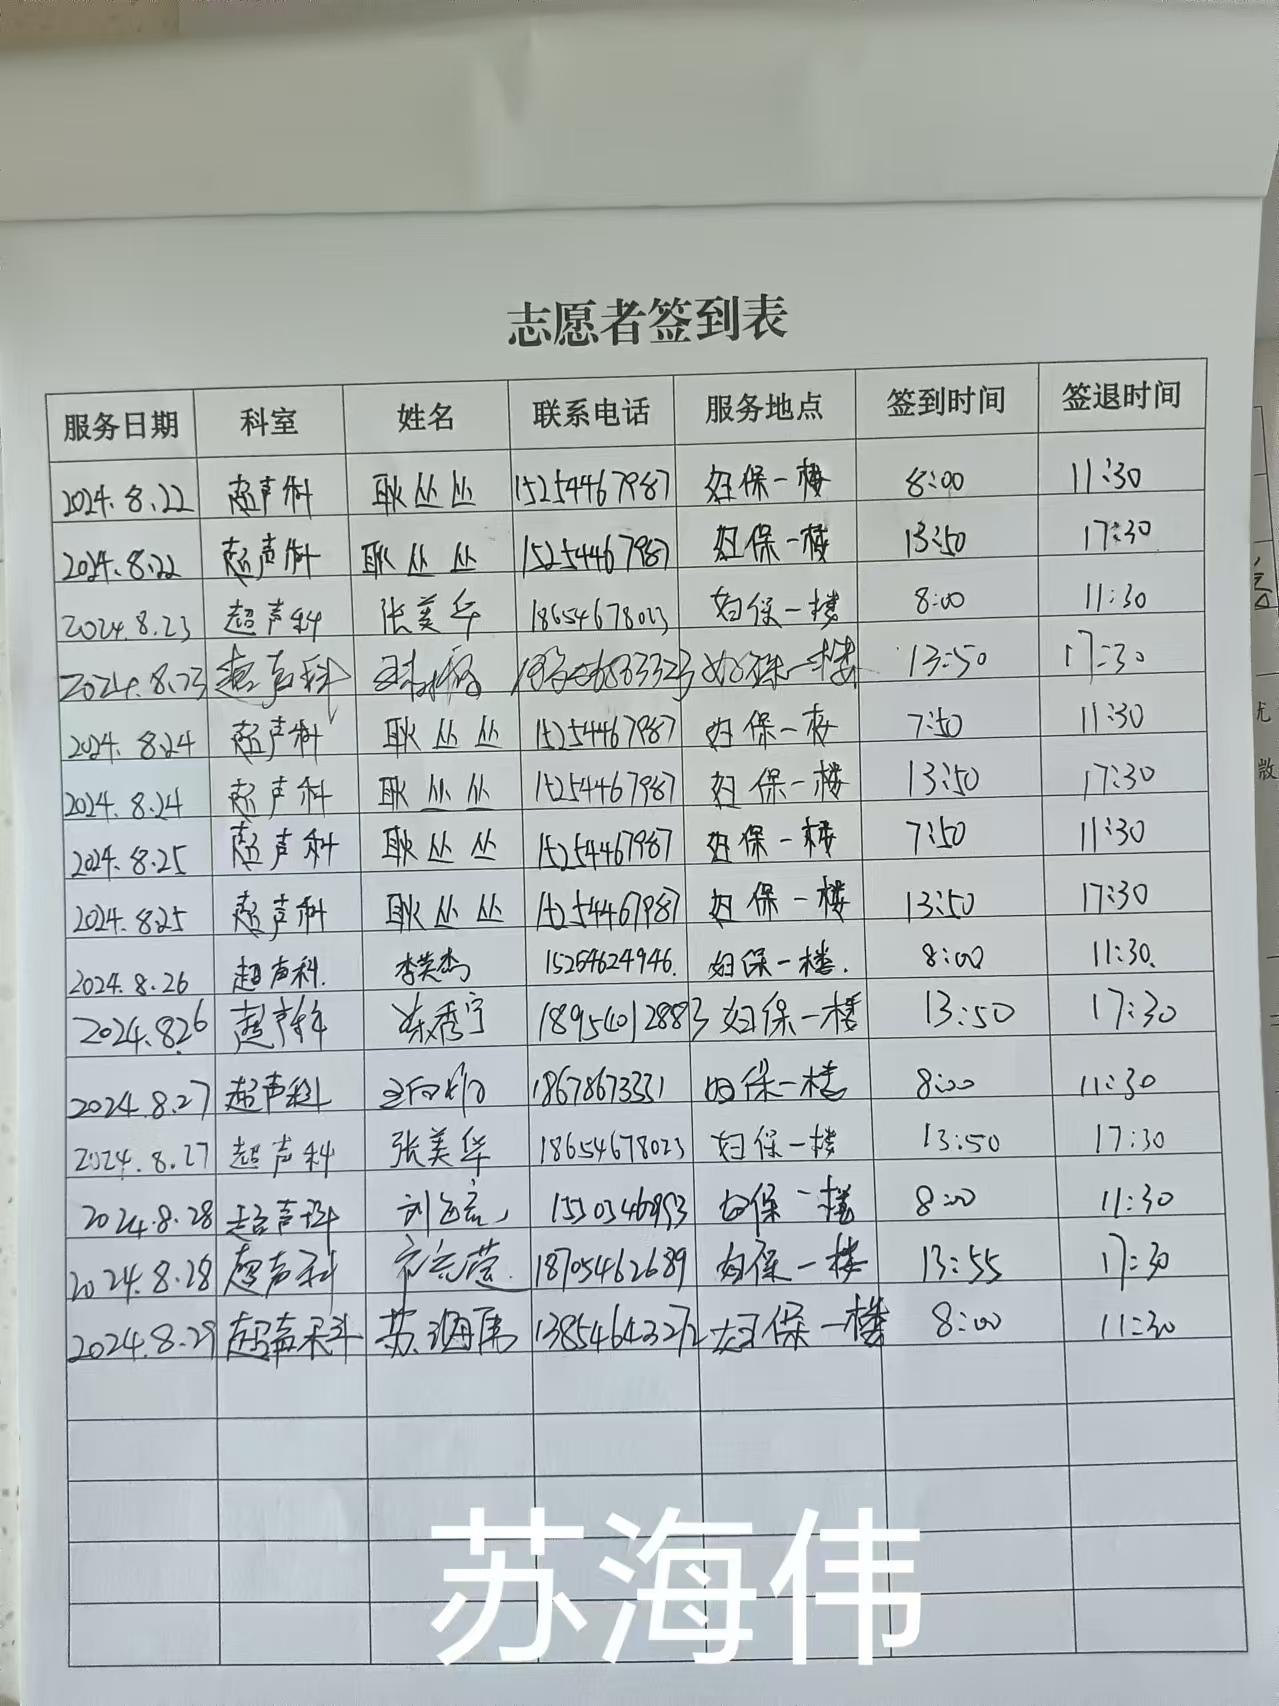 志愿者签到表
服务日期 科室 姓名 联系电话 服务地点 签到时间 签退时间
2024.8.22 超声科 耿丛丛 15254467987 妇保一楼 8:00 11:30
2024.8.22 超声科 耿丛丛 15254467987 妇保一楼 13:50 17:30
2024.8.23 超声科 张美华 18654678023 妇保一楼 8:00 11:30
2024.8.23 超声科 妇保一楼 13:50 17:30
2024.8.24 超声科 耿丛丛 15254467987 妇保一楼 7:50 11:30
2024.8.24 超声科 耿丛丛 15254467987 妇保一楼 13:50 17:30
2024.8.25 超声科 耿丛丛 15254467987 妇保一楼 7:50 11:30
2024.8.25 超声科 耿丛丛 15254467987 妇保一楼 13:50 17:30
2024.8.26 超声科. 李美杰 15264624946. 妇保一楼. 8:00 11:30.
2024.8.26 超声科 秀宁 18954012883 妇保一楼 13:50 17:30
2024.8.27 超声科 18678673331 妇保一楼 8:00 11:30
2024.8.27 超声科 张美华 18654678023 妇保一楼 13:50 17:30
2024.8.28 超声科 妇保一楼 8:00 11:30
2024.8.28 超声科 18705462689 妇保一楼 13:55 17:30
2024.8.29 超声科 苏海伟 13854643272 妇保一楼 8:00 11:30
苏海伟